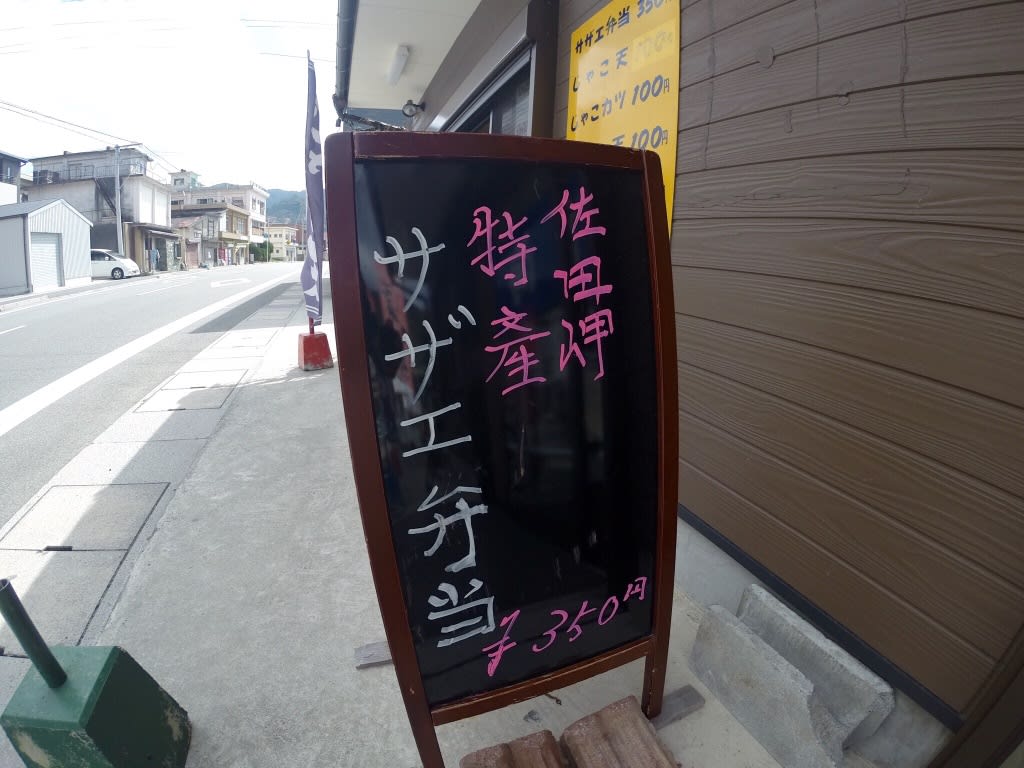 佐田岬
特産
サザエ弁当
¥350円
サザエ弁当 350円
じゃこ天 100円
じゃこカツ 100円
天 100円